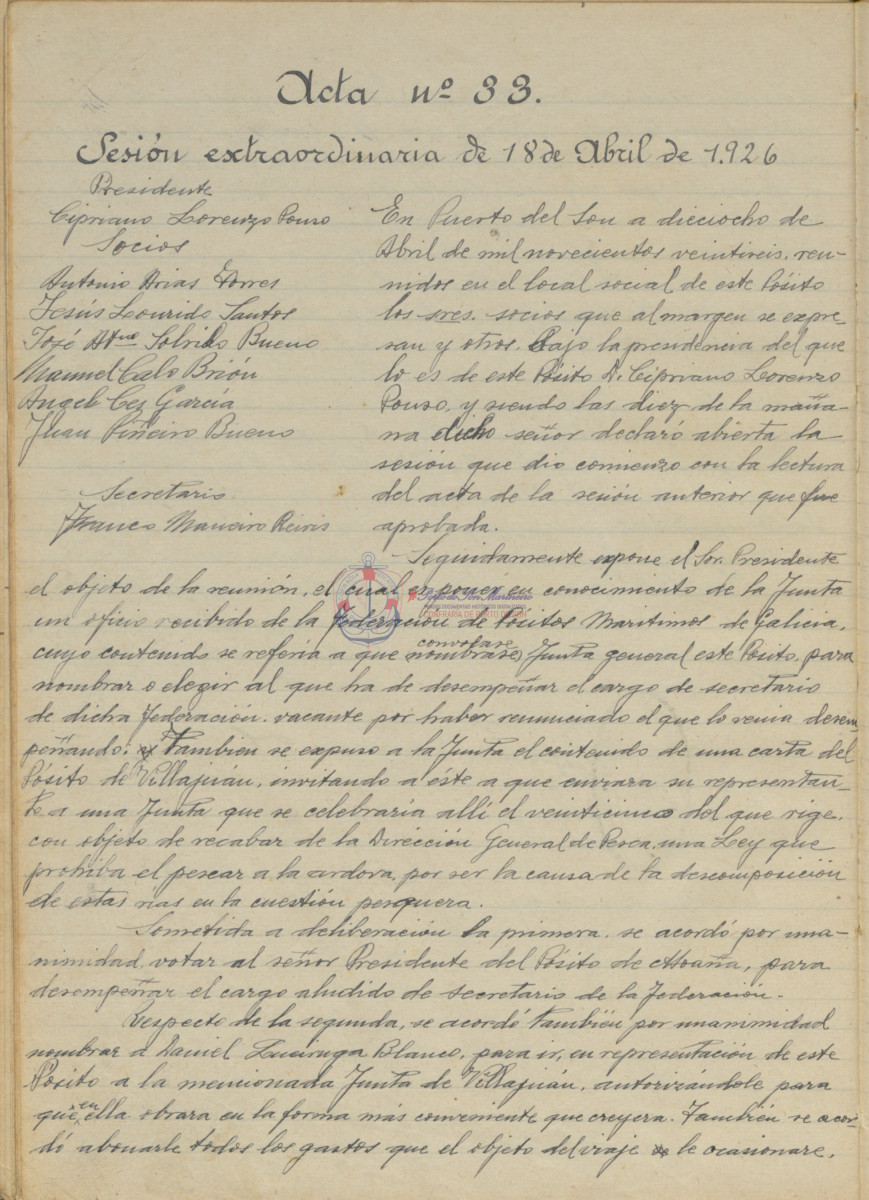 Acta nº 33.
Sesión extraordinaria de 18 de Abril de 1.926
Presidente
Cipriano Lorenzo Pouso
Socios
Antonio Arias Torres
Jesús Lourido Santos
José Atno Sobrido Bueno
Manuel Calo Brión
Angel Cez García
Juan Piñeiro Bueno
Secretario
Franco Maneiro Reiris
En Puerto del Son a dieciocho de
Abril de mil novecientos veintiseis, reu-
nidos en el local social de este Pósito
los sres. socios que al margen se expre-
san y otros. Bajo la presidencia del que
lo es de este Pósito D. Cipriano Lorenzo
Pouso, y siendo las diez de la maña-
na dicho señor declaró abierta la
sesión que dio comienzo con la lectura
del acta de la sesión anterior que fue
aprobada.
Seguidamente expone el Sor. Presidente
el objeto de la reunión, el cual es poner en conocimiento de la Junta
un oficio recibido de la Federación de Pósitos Marítimos de Galicia,
convocase
cuyo contenido se refería a que nombrase Junta general este Pósito, para
nombrar o elegir al que ha de desempeñar el cargo de secretario
de dicha Federación, vacante por haber renunciado el que lo venia desem-
peñando; y Tambien se expuso a la Junta el contenido de una carta del
Pósito de Villajuán, invitando a éste a que enviara su representan-
te a una Junta que se celebraría allí el veinticinco del que rige,
con objeto de recabar de la Dirección General de Pesca, una Ley que
prohiba el pescar a la ardora, por ser la causa de la descomposición
de estas rias en la cuestión pesquera.
Sometida a deliberación la primera, se acordó por una-
nimidad, votar al señor Presidente del Pósito de Moaña, para
desempeñar el cargo aludido de secretario de la Federación.
Respecto de la segunda, se acordó también por unanimidad
nombrar a Daniel Luciruga Blanco, para ir, en representación de este
Pósito a la mencionada Junta de Villajuán, autorizándole para
que en ella obrara en la forma más coinvemente que creyera. También se acor-
dó abonarle todos los gastos que el objeto del viaje le ocasionare.